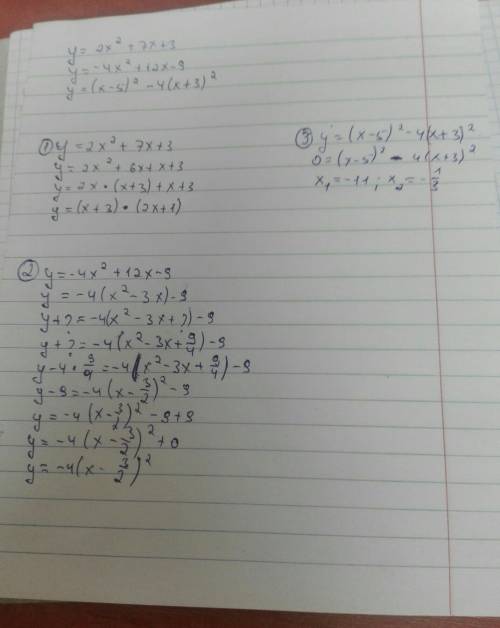 y = 2x² + 7x+3
y = -4x² + 12x - 9
y = (x-5)² - 4(x+3)²
① y = 2x² + 7x+3
y = 2x² + 6x + x+3
y = 2x • (x+3) + x+3
y = (x+3) • (2x+1)
③ y = (x-5)² - 4(x+3)²
0 = (x-5)² - 4(x+3)²
x₁ = -11 ; x₂ = -1/3
② y = -4x² + 12x - 9
y = -4(x² - 3x) - 9
y + ? = -4(x² - 3x + ?) - 9
y + ? = -4(x² - 3x + 9/4) - 9
y - 4 • 9/4 = -4(x² - 3x + 9/4) - 9
y - 9 = -4(x - 3/2)² - 9
y = -4(x - 3/2)² - 9 + 9
y = -4(x - 3/2)² + 0
y = -4(x - 3/2)²